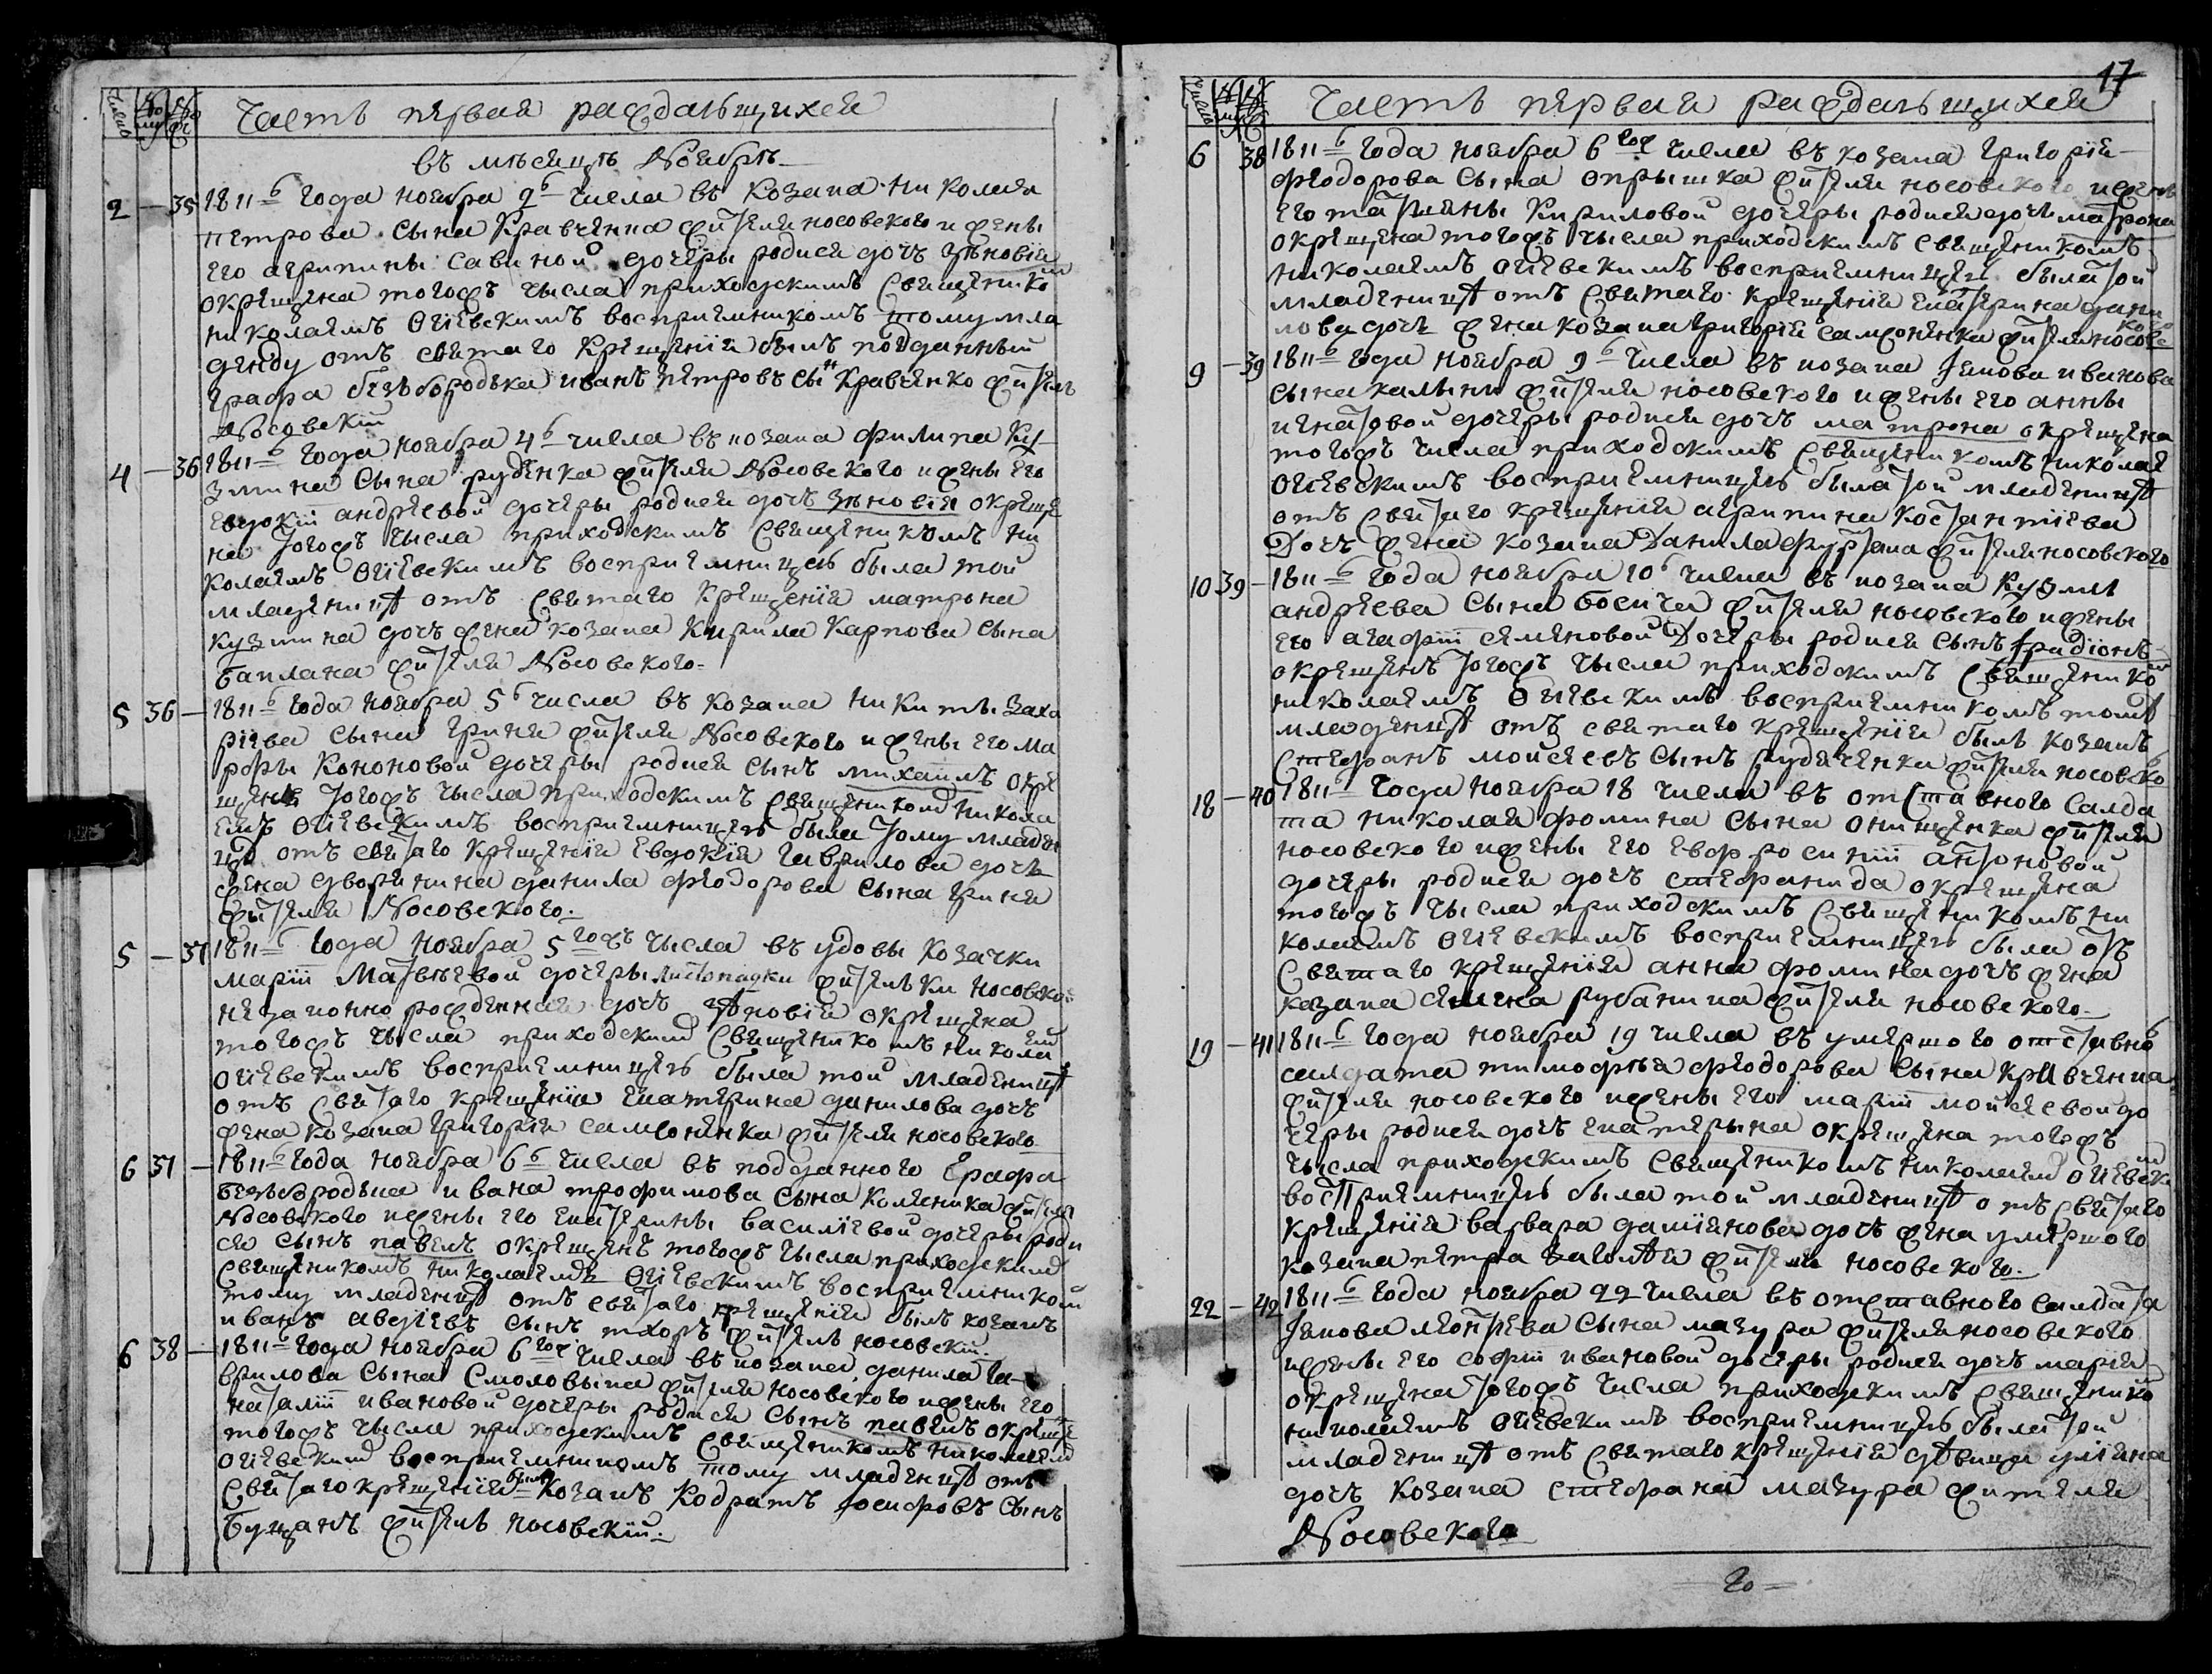 Число
му
же
Часть первая раждающихся
въ месяцѣ Ноябрѣ
2 — 35 1811 го года ноября 2 го числа въ козака николая
петрова сына Кравченка жителя носовского и жены
его агрипины савиной дочеры родися дочь зѣновія
окрещена тогожъ чысла приходскимъ священико м
николаемъ Огіевскимъ восприемникомъ тому мла
денцу отъ святаго крещенія былъ подданный
графа безбородька иванъ петровъ сы н Кравченко житель
Носовскій
4 — 36 1811 го года ноября 4 го числа въ козака филипа Ку
змина сына руденка жителя Носовского и жены его
евдокіи андреевой дочеры родися дочь зѣновія окреще
на тогожъ чысла приходскимъ священикомъ ни
колаемъ Огіевскимъ восприемницею была той
младеницѣ отъ святаго крещенія матрона
кузмина дочь жена козака кирила карпова сына
баклана жителя Носовского
5 36 — 1811 го года ноября 5 го числа въ козака никиты заха
ріева сына гриня жителя Носовского и жены его ма
рфы кононовой дочеры родися сынъ михаилъ окре
щенъ тогожъ чысла приходскимъ священикомъ никола
емъ Огіевскимъ восприемницею была тому младен
цу отъ святаго крещенія евдокія гаврилова дочь
жена дворянина данила феодорова сына гриня
жителя Носовского
5 — 37 1811 го года ноября 5 гожъ чысла въ удовы козачки
маріи Матвѣевой дочеры листопадки жителки носовской
незаконно рожденная дочь зѣновія окрещена
тогожъ чысла приходским священикомъ никола ем
огіевскимъ восприемницею была той младеницѣ
отъ святаго крещенія екатерина данилова дочь
жена козака григорія самсоненка жителя носовского
6 37 — 1811 го года ноября 6 го числа въ подданного графа
безбородька ивана трофимова сына коленика жителя
Носовского и жены его екатерины василіевой дочеры роди
ся сынъ павелъ окрещенъ тогожъ чысла приходским
священикомъ николаемъ Огіевскимъ восприемником
тому младенцу отъ святаго крещенія былъ козакъ
иванъ авдіевъ сынъ тхоръ житель носовскій
6 38 — 1811 го года ноября 6 гож числа въ козака данила га
врилова сына смоловыка жителя носовского и жены его
наталіи ивановой дочеры родися сынъ павелъ окреще
тогожъ чысла приходскимъ священикомъ николаем
огіевским восприемникомъ тому младенцѣ отъ
святаго крещенія былъ козакъ кодратъ іосифовъ сынъ
буцанъ житель носовскій
17
Число
му
же
Часть первая раждающихся
6 38 1811 го года ноября 6 гож числа въ козака григорія
феодорова сына опрышка жителя носовского и жены
его татіяны кириловой дочеры родися дочь матрона
окрещена тогожъ чысла приходскимъ священикомъ
николаемъ огіевскимъ восприемницею была той
младеницѣ отъ святаго крещенія екатерина дани
лова дочь жена козака григорія самсоненка жителя носовс кого
9 — 39 1811 го года ноября 9 го числа въ козака Якова иванова
сына калыни жителя носовского и жены его анны
игнатовой дочеры родися дочь матрона окрещена
тогожъ числа приходскимъ священикомъ николае
огіевскимъ восприемницею была той младеницѣ
отъ святаго крещенія агрипина костантіева
дочь жена козака данила фурсана жителя носовского
10 39 — 1811 го года ноября 10 го числа въ козака Кузмы
андреева сына босича жителя носовского и жены
его агафіи семеновой дочеры родися сынъ іродіонъ
окрещенъ тогожъ чысла приходскимъ священико м
николаемъ Огіевскимъ восприемникомъ томѣ
младенцѣ отъ святаго крещенія былъ козакъ
Стефанъ мойсеевъ сынъ рудяченка жителя носовско го
18 — 40 1811 го года ноября 18 числа въ отставного салда
та николая фомина сына онищенка жителя
носовского и жены его евфросиніи антоновой
дочеры родися дочь стефанида окрещена
тогожъ чысла приходскимъ священикомъ ни
колаемъ огіевскимъ восприемницею была отъ
святаго крещенія анна фомина дочь жена
казака семена рубанина жителя носовского
19 — 41 1811 го года ноября 19 числа въ умершого отставно го
салдата тимофея феодорова сына кравченка
жителя носовского и жены его маріи мойсеевой до
черы родися дочь екатерына окрещена тогожъ
чысла приходскимъ священикомъ николаем огіевски м
восприемницею была той младеницѣ отъ святаго
крещенія варвара даміянова дочь жена умершого
козака петра заголѣя жителя носовского
22 — 42 1811 го года ноября 22 числа въ отставного салдата
Якова леонтіева сына мазура жителя носовского
и жены его софіи ивановой дочеры родися дочь марія
окрещена тогожъ числа приходскимъ священико
николаемъ огіевскимъ восприемницею была той
младеницѣ отъ святаго крещенія дѣвица уліяна
дочь козака стефана мазура жителя
Носовского
го